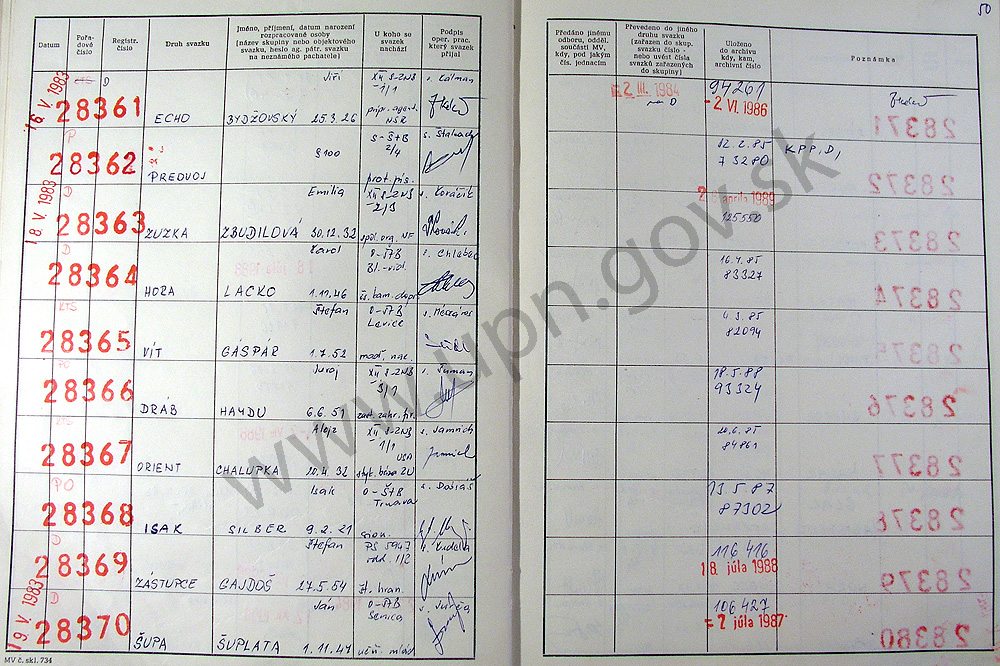 50
Datum
Pořa-
dové
číslo
Registr.
číslo
Druh svazku
Jméno, příjmení, datum narození
rozpracované osoby
(název skupiny nebo objektového
svazku, heslo ag. pátr. svazku
na neznámého pachatele)
U koho se
svazek
nachází
Podpis
oper. prac.
který svazek
přijal
Předáno jinému
odboru, odděl.
součásti MV,
kdy, pod jakým
čís. jednacím
Převedeno do jiného
druhu svazku
(zařazen do skup.
svazku číslo -
nebo uvést čísla
svazků zařazených
do skupiny)
Uloženo
do archivu
kdy, kam,
archivní číslo
Poznámka
16. V. 1983
KTS D
28361
ECHO
Jiří
BYDŽOVSKÝ 25.3.26
XII S-ZNB
1/1
NSR
s. Colman
2 III. 1984
na D
94261
- 2 VI. 1986
P
28362
PREDVOJ
S-ŠtB
2/4
prot. pís.
12.2.85
73280
KPP, D,
18 V. 1983
D
28363
ZUZKA
Emilia
ZBUDILOVÁ 30.12.32
XII S-ZNB
2/3
apríla 1989
125550
D
28364
HORA
Karol
LACKO 1.11.46
O-ŠTB
s. Chlebec
16.4.85
83327
KTS
28365
VÍT
Štefan
GÁSPÁR 1.7.52
O-ŠTB
Levice
maď. nac.
6.3.85
82094
PO
28366
DRÁB
Juroj
HAYDU 6.6.51
XII S-ZNB
3/1
s. Šuman
18.5.88
93324
KTS
28367
ORIENT
Alojz
CHALUPKA 10.4.32
XII S-ZNB
1/1
USA
s. Jamrich
20.6.85
84861
PO
28368
ISAK
Isak
SILBER 9.2.21
O-ŠTB
Trnava
sion.
13.5.87
87302
D
28369
ZÁSTUPCE
Štefan
GAJDOŠ 27.5.54
PS 5947
odd. 1/2
št. hran.
116416
18. júla 1988
19 V. 1983
D
28370
ŠUPA
Ján
ŠUPLATA 1.11.47
O-ŠTB
Senica
učň. mlád.
106427
= 2 júla 1987
28371
28372
28373
28374
28375
28376
28377
28378
28379
28380
MV č. skl. 734
www.upn.gov.sk